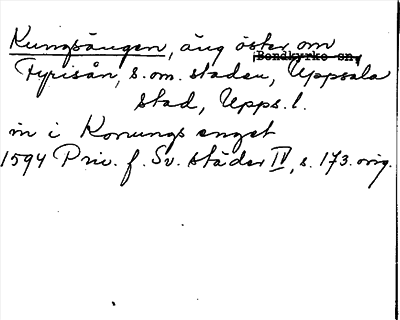 Kungsängen, äng öster om
Bondkyrko sn,
Fyrisån, s. om staden, Uppsala
stad, Upps. l.
in i Konungs enget
1594 Priv. f. Sv. städer IV, s. 173. orig.